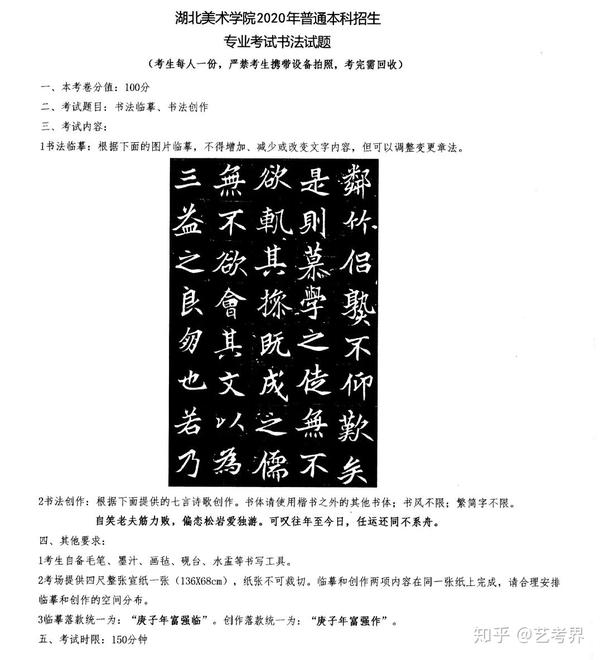 湖北美术学院2020年普通本科招生
专业考试书法试题
(考生每人一份,严禁考生携带设备拍照,考完需回收)
一、本考卷分值:100分
二、考试题目:书法临摹、书法创作
三、考试内容:
1书法临摹:根据下面的图片临摹,不得增加、减少或改变文字内容,但可以调整变更章法。
鄰竹侣孰不仰歎矣
是則慕學之徒無不
欲軌其操既成之儒
無不欲會其文以為
三益之良朋也若乃
2书法创作:根据下面提供的七言诗歌创作。书体请使用楷书之外的其他书体;书风不限;繁简字不限。
自笑老夫筋力败,偏恋松岩爱独游。可叹往年至今日,任运还同不系舟。
四、其他要求:
1考生自备毛笔、墨汁、画毡、砚台、水盂等书写工具。
2考场提供四尺整张宣纸一张(136X68cm),纸张不可裁切。临摹和创作两项内容在同一张纸上完成,请合理安排
临摹和创作的空间分布。
3临摹落款统一为:“庚子年富强临”。创作落款统一为:“庚子年富强作”。
五、考试时限:150分钟
知乎 @艺考界